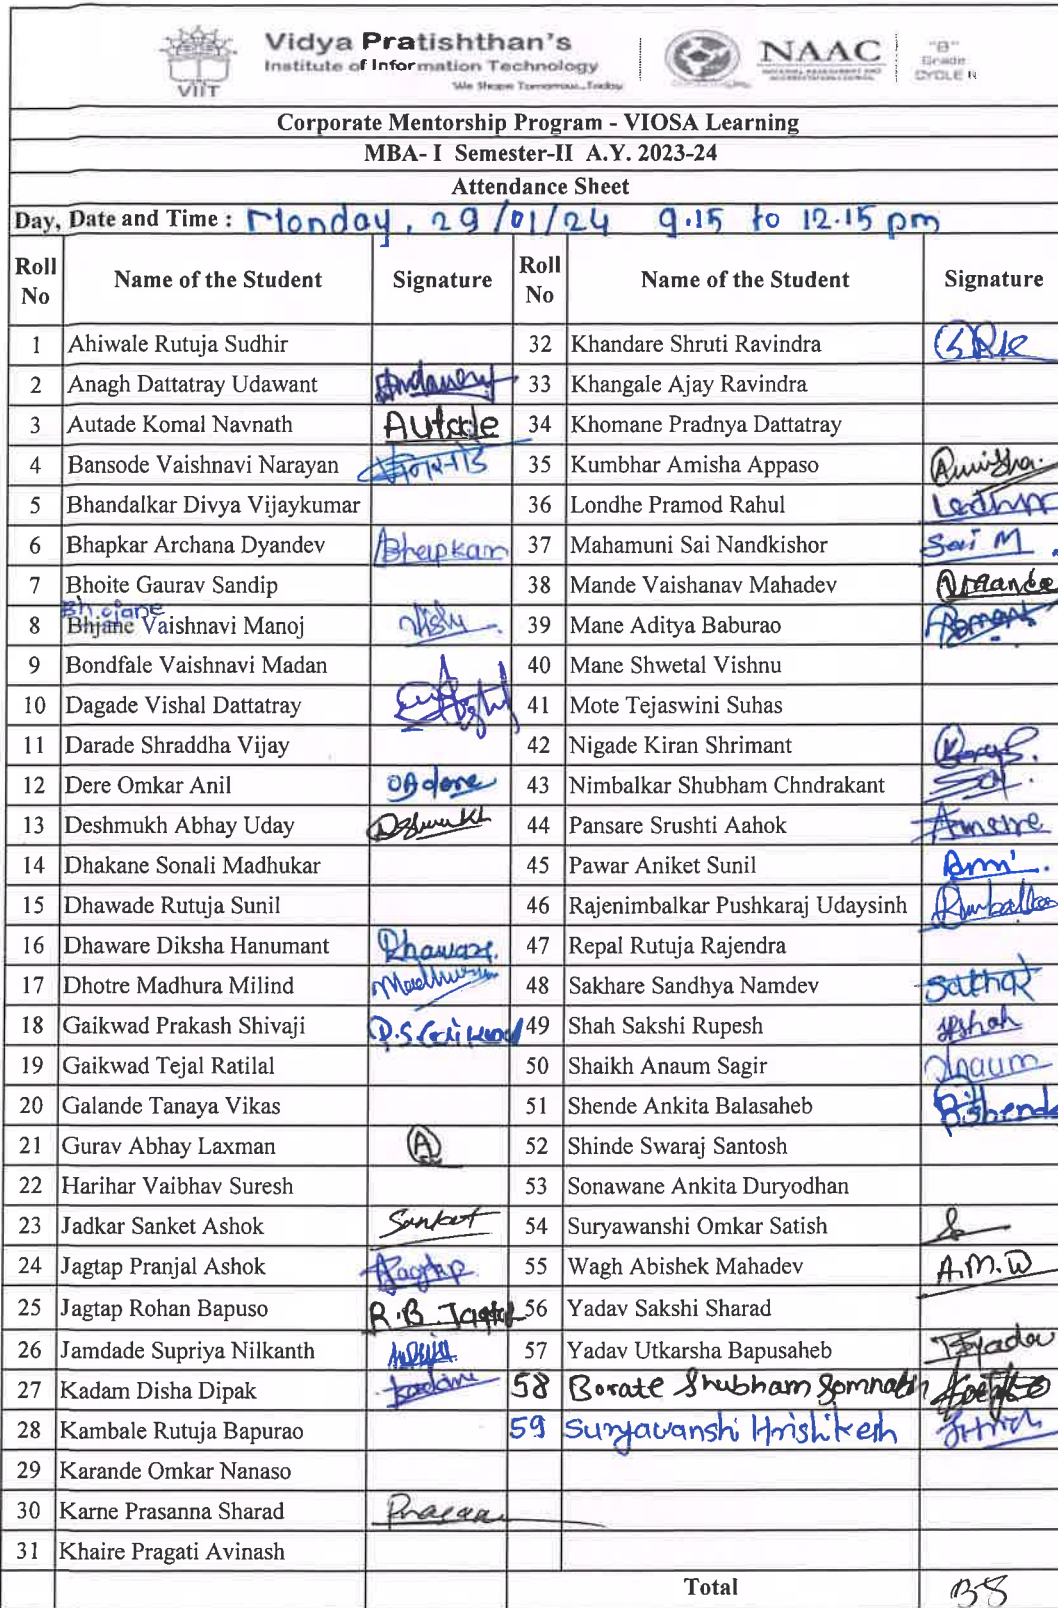 Vidya Pratishthan's
Institute of Information Technology
We Shape Tomorrow...Today
VIIT
NAAC
NATIONAL ASSESSMENT AND ACCREDITATION COUNCIL
"B"
Grade
CYCLE II
Corporate Mentorship Program - VIOSA Learning
MBA- I Semester-II A.Y. 2023-24
Attendance Sheet
Day, Date and Time : Monday, 29/01/24 9.15 to 12.15 pm
Roll No Name of the Student Signature Roll No Name of the Student Signature
1 Ahiwale Rutuja Sudhir 32 Khandare Shruti Ravindra
2 Anagh Dattatray Udawant 33 Khangale Ajay Ravindra
3 Autade Komal Navnath Autade 34 Khomane Pradnya Dattatray
4 Bansode Vaishnavi Narayan 35 Kumbhar Amisha Appaso Amisha.
5 Bhandalkar Divya Vijaykumar 36 Londhe Pramod Rahul
6 Bhapkar Archana Dyandev Bhapkar 37 Mahamuni Sai Nandkishor Sai M
7 Bhoite Gaurav Sandip 38 Mande Vaishanav Mahadev
Bhojane
8 Bhjane Vaishnavi Manoj 39 Mane Aditya Baburao
9 Bondfale Vaishnavi Madan 40 Mane Shwetal Vishnu
10 Dagade Vishal Dattatray 41 Mote Tejaswini Suhas
11 Darade Shraddha Vijay 42 Nigade Kiran Shrimant
12 Dere Omkar Anil 43 Nimbalkar Shubham Chndrakant
13 Deshmukh Abhay Uday Deshmukh 44 Pansare Srushti Aahok
14 Dhakane Sonali Madhukar 45 Pawar Aniket Sunil
15 Dhawade Rutuja Sunil 46 Rajenimbalkar Pushkaraj Udaysinh
16 Dhaware Diksha Hanumant Dhaware. 47 Repal Rutuja Rajendra
17 Dhotre Madhura Milind 48 Sakhare Sandhya Namdev
18 Gaikwad Prakash Shivaji P.S Gaikwad 49 Shah Sakshi Rupesh
19 Gaikwad Tejal Ratilal 50 Shaikh Anaum Sagir Anaum
20 Galande Tanaya Vikas 51 Shende Ankita Balasaheb
21 Gurav Abhay Laxman A 52 Shinde Swaraj Santosh
22 Harihar Vaibhav Suresh 53 Sonawane Ankita Duryodhan
23 Jadkar Sanket Ashok Sanket 54 Suryawanshi Omkar Satish
24 Jagtap Pranjal Ashok Jagtap 55 Wagh Abishek Mahadev A.M.W
25 Jagtap Rohan Bapuso R.B Jagtap 56 Yadav Sakshi Sharad
26 Jamdade Supriya Nilkanth 57 Yadav Utkarsha Bapusaheb
27 Kadam Disha Dipak 58 Borate Shubham Somnath
28 Kambale Rutuja Bapurao 59 Suryavanshi Hrishikesh
29 Karande Omkar Nanaso
30 Karne Prasanna Sharad
31 Khaire Pragati Avinash
Total 38